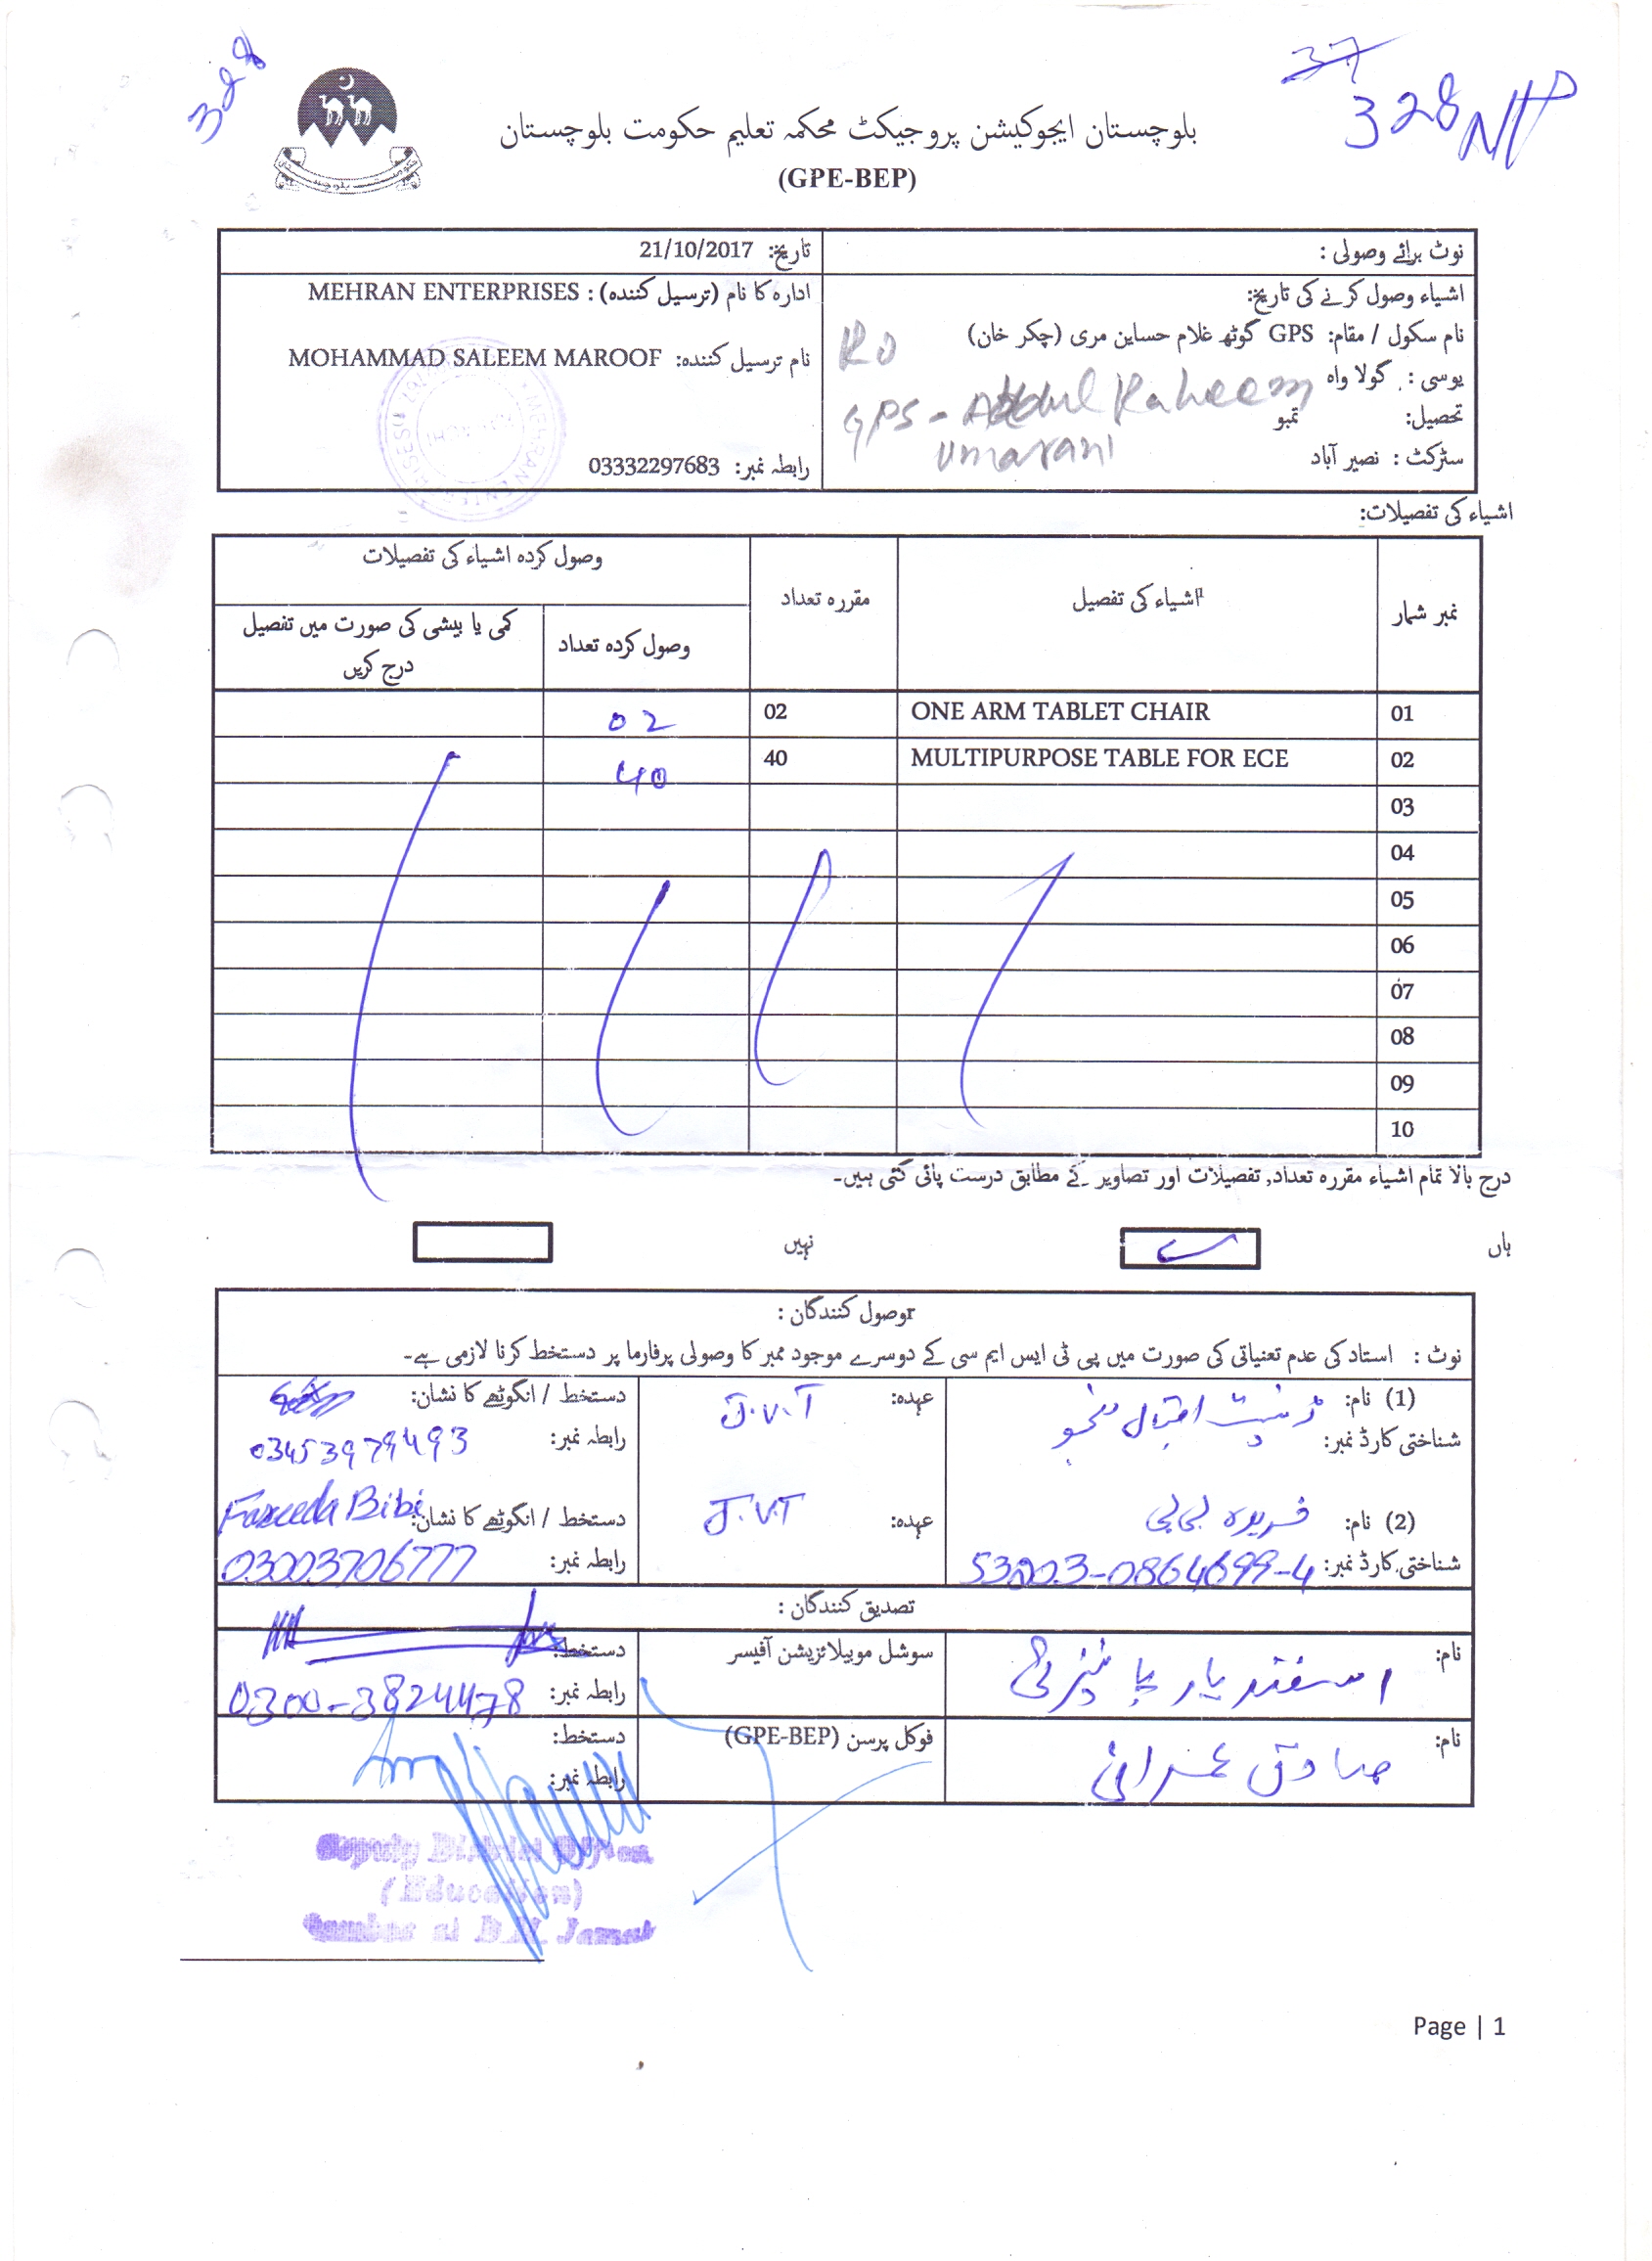 328
37
328 NP
بلوچستان ایجوکیشن پروجیکٹ محکمہ تعلیم حکومت بلوچستان
(GPE-BEP)
نوٹ برائے وصولی :
تاریخ: 21/10/2017
اشیاء وصول کرنے کی تاریخ:
ادارہ کا نام (ترسیل کنندہ) : MEHRAN ENTERPRISES
نام سکول / مقام: GPS گوٹھ غلام حساین مری (چکر خان)
نام ترسیل کنندہ: MOHAMMAD SALEEM MAROOF
یوسی : گولا واہ
GPS - Abdul Raheem
Umarani
تحصیل: تمبو
سٹرکٹ : نصیر آباد
رابطہ نمبر: 03332297683
اشیاء کی تفصیلات:
نمبر شمار اشیاء کی تفصیل مقررہ تعداد وصول کردہ اشیاء کی تفصیلات
وصول کردہ تعداد کمی یا بیشی کی صورت میں تفصیل درج کریں
01 ONE ARM TABLET CHAIR 02 02
02 MULTIPURPOSE TABLE FOR ECE 40 40
03
04
05
06
07
08
09
10
درج بالا تمام اشیاء مقررہ تعداد, تفصیلات اور تصاویر کے مطابق درست پائی گئی ہیں۔
ہاں نہیں
وصول کنندگان :
نوٹ : استاد کی عدم تعنیاتی کی صورت میں پی ٹی ایس ایم سی کے دوسرے موجود ممبر کا وصولی پرفارما پر دستخط کرنا لازمی ہے۔
(1) نام: عہدہ: J.V.T دستخط / انگوٹھے کا نشان:
شناختی کارڈ نمبر: رابطہ نمبر: 03453979493
(2) نام: فریدہ بی بی عہدہ: J.V.T دستخط / انگوٹھے کا نشان: Fareeda Bibi
شناختی کارڈ نمبر: 53203-0864699-4 رابطہ نمبر: 03003706777
تصدیق کنندگان :
نام: اسفندیار سوشل موبیلائزیشن آفیسر دستخط:
رابطہ نمبر: 0300-3824478
نام: صادق عمرانی فوکل پرسن (GPE-BEP) دستخط:
رابطہ نمبر:
Deputy District Officer
(Education)
Page | 1